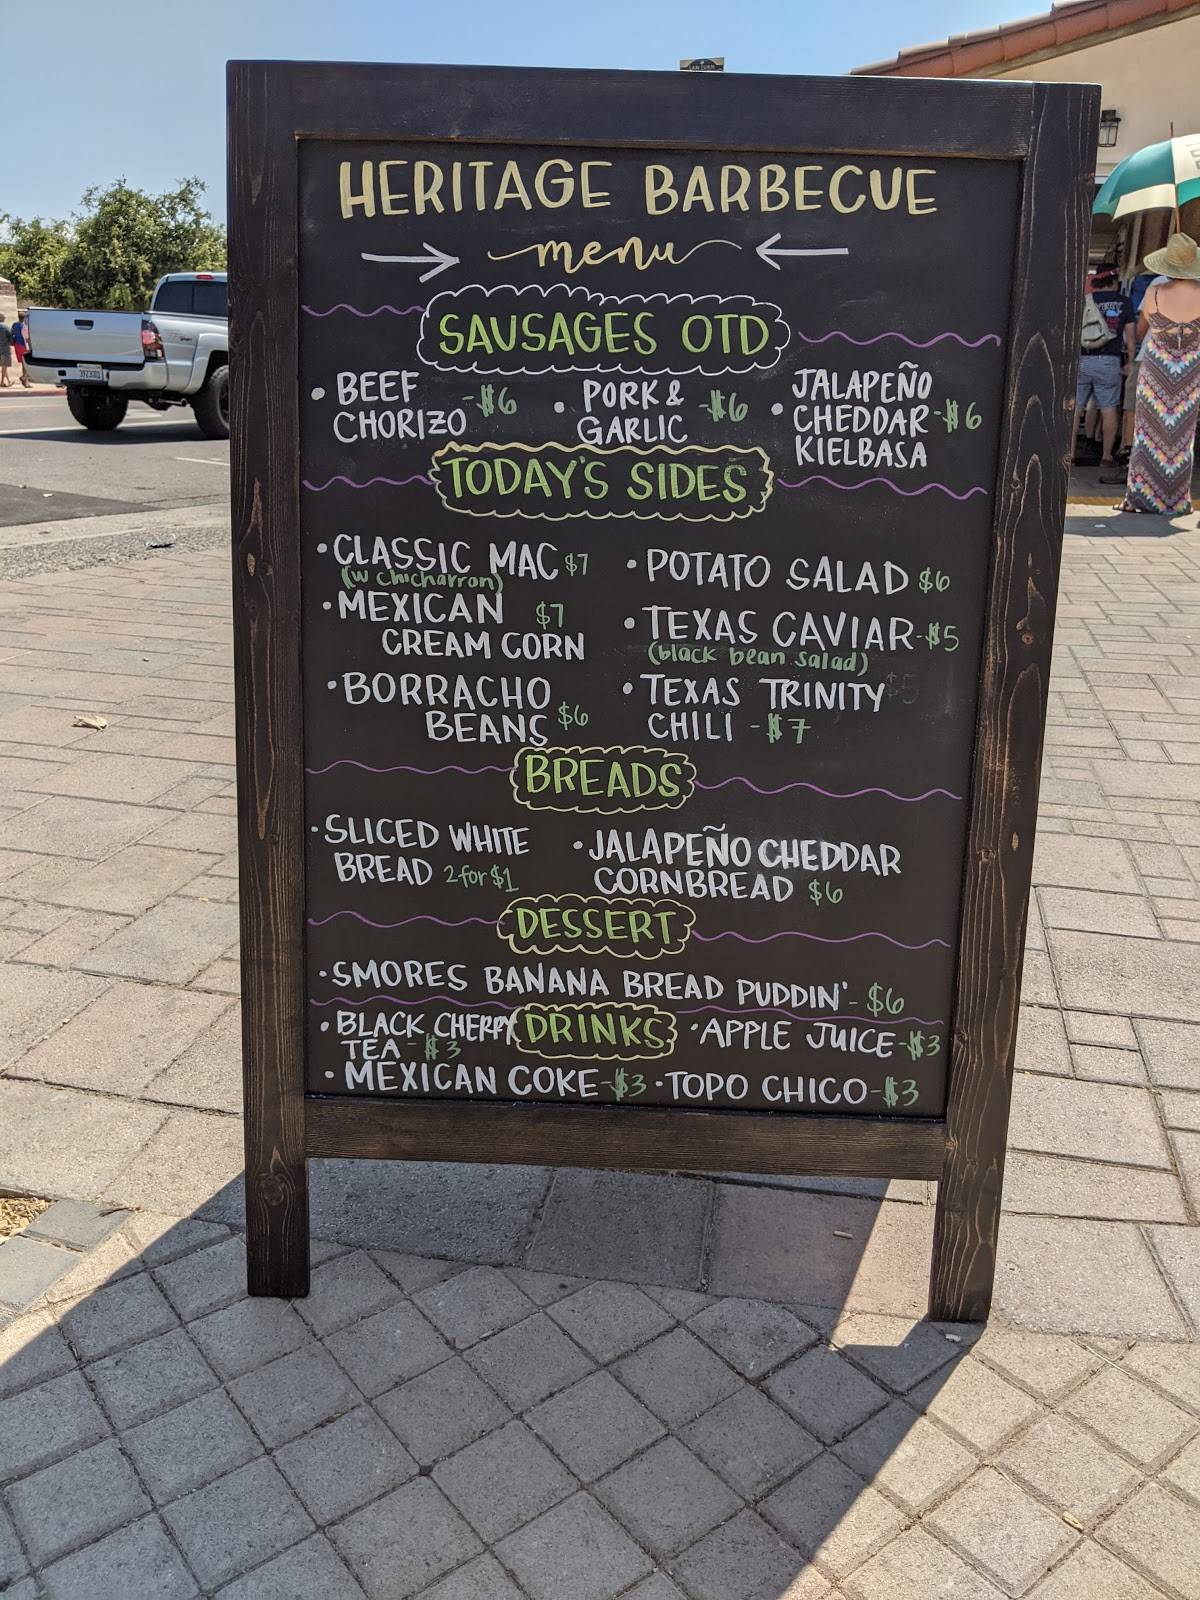 HERITAGE BARBECUE
menu
SAUSAGES OTD
• BEEF CHORIZO -$6
• PORK & GARLIC -$6
• JALAPEÑO CHEDDAR KIELBASA -$6
TODAY'S SIDES
• CLASSIC MAC $7
(w chicharron)
• MEXICAN $7
CREAM CORN
• BORRACHO
BEANS $6
• POTATO SALAD $6
• TEXAS CAVIAR -$5
(black bean salad)
• TEXAS TRINITY $5
CHILI - $7
BREADS
• SLICED WHITE
BREAD 2 for $1
• JALAPEÑO CHEDDAR
CORNBREAD $6
DESSERT
• SMORES BANANA BREAD PUDDIN' - $6
DRINKS
• BLACK CHERRY
TEA - $3
• APPLE JUICE -$3
• MEXICAN COKE -$3 • TOPO CHICO -$3